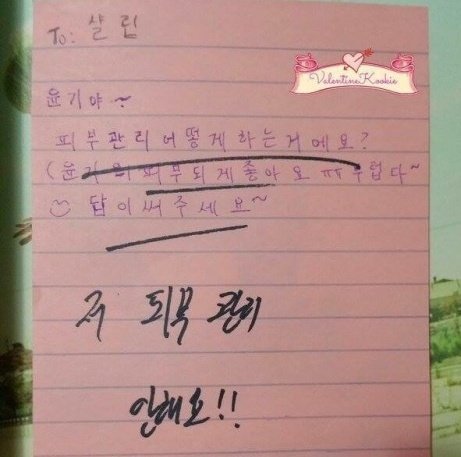 To: 샬립
ValentineKookie
윤기야~
피부관리 어떻게 하는거에요?
(윤기 피부 되게 좋아요 ㅠㅠ 부럽다~
답이 써 주세요~
저 피부 관리
안해요!!